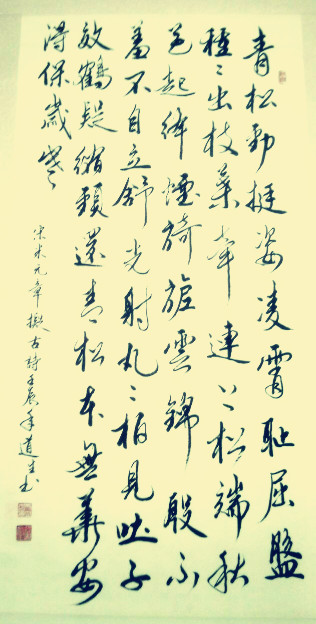 青松勁挺姿凌霄耻屈盤
種〻出枝葉牽連上松端秋
花起絳煙旖旎雲錦殷不
羞不自立舒光射丸〻柏見吐子
效鶴疑縮頸還青松本無華安
得保歲寒
宋米元章擬古詩壬辰年道生書